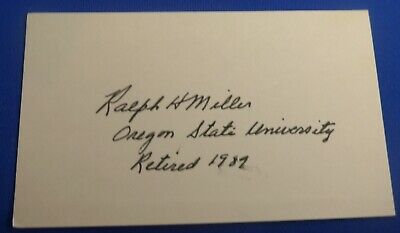 Ralph H Miller
Oregon State University
Retired 1989